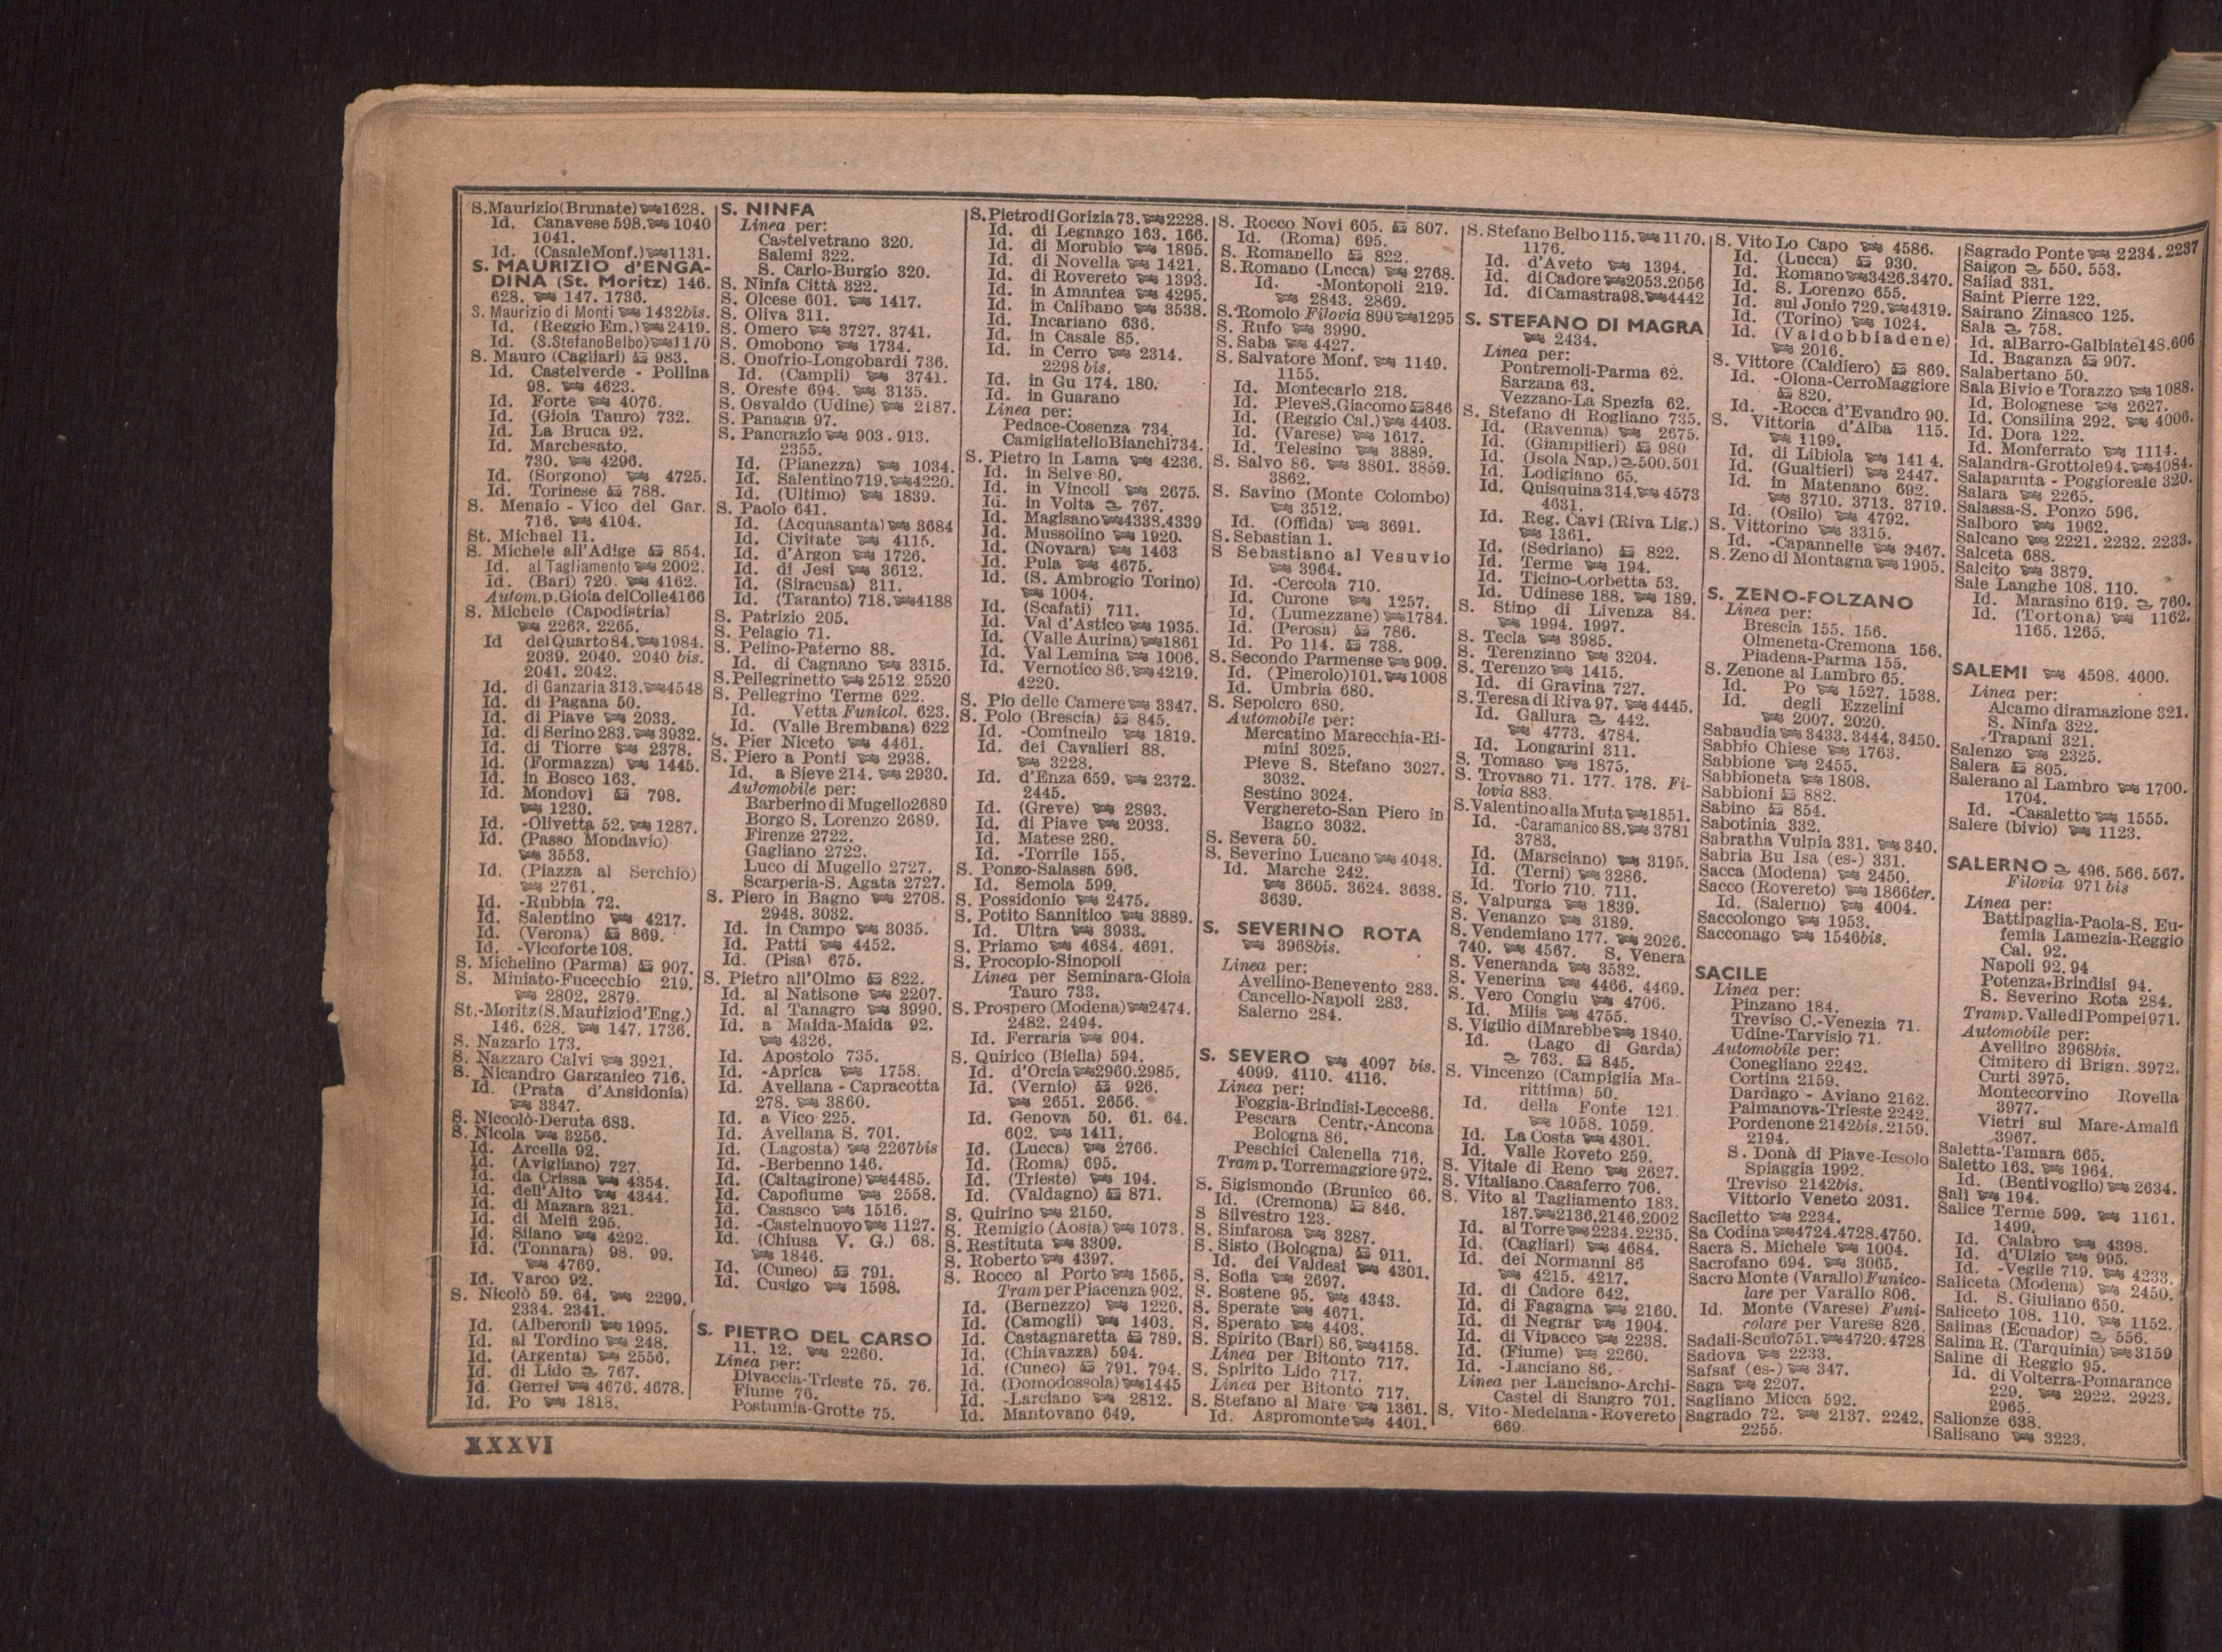 S.Maurizio(Brunate) 1628.
Id. Canavese 598. 1040
1041.
Id. (CasaleMonf.) 1131.
S. MAURIZIO d'ENGA-
DINA (St. Moritz) 146.
628. 147. 1736.
S. Maurizio di Monti 1432bis.
Id. (Reggio Em.) 2419.
Id. (S.StefanoBelbo) 1170
S. Mauro (Cagliari) 983.
Id. Castelverde - Pollina
98. 4623.
Id. Forte 4076.
Id. (Gioia Tauro) 732.
Id. La Bruca 92.
Id. Marchesato.
730. 4296.
Id. (Sorgono) 4725.
Id. Torinese 788.
S. Menaio - Vico del Gar.
716. 4104.
St. Michael 11.
S. Michele all'Adige 854.
Id. al Tagliamento 2002.
Id. (Bari) 720. 4162.
Autom.p.Gioia delColle4166
S. Michele (Capodistria)
2263. 2265.
Id del Quarto 84. 1984.
2039. 2040. 2040 bis.
2041. 2042.
Id. di Ganzaria 313. 4548
Id. di Pagana 50.
Id. di Piave 2033.
Id. di Serino 283. 3932.
Id. di Tiorre 2378.
Id. (Formazza) 1445.
Id. in Bosco 163.
Id. Mondovì 798.
1230.
Id. -Olivetta 52. 1287.
Id. (Passo Mondavio)
3553.
Id. (Piazza al Serchio)
2761.
Id. -Rubbia 72.
Id. Salentino 4217.
Id. (Verona) 869.
Id. -Vicoforte 108.
S. Michelino (Parma) 907.
S. Miniato-Fucecchio 219.
2802. 2879.
St.-Moritz (S.Maurizio d'Eng.)
146. 628. 147. 1736.
S. Nazario 173.
S. Nazzaro Calvi 3921.
S. Nicandro Garganico 716.
Id. (Prata d'Ansidonia)
3347.
S. Niccolò-Deruta 683.
S. Nicola 3256.
Id. Arcella 92.
Id. (Avigliano) 727.
Id. da Crissa 4354.
Id. dell'Alto 4344.
Id. di Mazara 321.
Id. di Melfi 295.
Id. Silano 4292.
Id. (Tonnara) 98. 99.
4769.
Id. Varco 92.
S. Nicolò 59. 64. 2299.
2334. 2341.
Id. (Alberoni) 1995.
Id. al Tordino 248.
Id. (Argenta) 2556.
Id. di Lido 767.
Id. Gerrei 4676. 4678.
Id. Po 1818.
S. NINFA
Linea per:
Castelvetrano 320.
Salemi 322.
S. Carlo-Burgio 320.
S. Ninfa Città 322.
S. Olcese 601. 1417.
S. Oliva 311.
S. Omero 3727. 3741.
S. Omobono 1734.
S. Onofrio-Longobardi 736.
Id. (Campli) 3741.
S. Oreste 694. 3135.
S. Osvaldo (Udine) 2187.
S. Panagia 97.
S. Pancrazio 903. 913.
2355.
Id. (Pianezza) 1034.
Id. Salentino 719. 4220.
Id. (Ultimo) 1839.
S. Paolo 641.
Id. (Acquasanta) 3684
Id. Civitate 4115.
Id. d'Argon 1726.
Id. di Jesi 3612.
Id. (Siracusa) 311.
Id. (Taranto) 718. 4188
S. Patrizio 205.
S. Pelagio 71.
S. Pelino-Paterno 88.
Id. di Cagnano 3315.
S.Pellegrinetto 2512. 2520
S. Pellegrino Terme 622.
Id. Vetta Funicol. 623.
Id. (Valle Brembana) 622
S. Pier Niceto 4461.
S. Piero a Ponti 2938.
Id. a Sieve 214. 2930.
Automobile per:
Barberino di Mugello2689
Borgo S. Lorenzo 2689.
Firenze 2722.
Gagliano 2722.
Luco di Mugello 2727.
Scarperia-S. Agata 2727.
S. Piero in Bagno 2708.
2948. 3032.
Id. in Campo 3035.
Id. Patti 4452.
Id. (Pisa) 675.
S. Pietro all'Olmo 822.
Id. al Natisone 2207.
Id. al Tanagro 3990.
Id. a Maida-Maida 92.
4326.
Id. Apostolo 735.
Id. -Aprica 1758.
Id. Avellana - Capracotta
278. 3860.
Id. a Vico 225.
Id. Avellana S. 701.
Id. (Lagosta) 2267bis
Id. -Berbenno 146.
Id. (Caltagirone) 4485.
Id. Capofiume 2558.
Id. Casasco 1516.
Id. -Castelnuovo 1127.
Id. (Chiusa V. G.) 68.
1846.
Id. (Cuneo) 791.
Id. Cusigo 1598.
S. PIETRO DEL CARSO
11. 12. 2260.
Linea per:
Divaccia-Trieste 75. 76.
Fiume 76.
Postumia-Grotte 75.
S.Pietro di Gorizia 73. 2228.
Id. di Legnago 163. 166.
Id. di Morubio 1895.
Id. di Novella 1421.
Id. di Rovereto 1393.
Id. in Amantea 4295.
Id. in Calibano 3538.
Id. Incariano 636.
Id. in Casale 85.
Id. in Cerro 2314.
2298 bis.
Id. in Gu 174. 180.
Id. in Guarano
Linea per:
Pedace-Cosenza 734.
CamigliatelloBianchi734.
S. Pietro in Lama 4236.
Id. in Selve 80.
Id. in Vincoli 2675.
Id. in Volta 767.
Id. Magisano 4338.4339
Id. Mussolino 1920.
Id. (Novara) 1463
Id. Pula 4675.
Id. (S. Ambrogio Torino)
1004.
Id. (Scafati) 711.
Id. Val d'Astico 1935.
Id. (Valle Aurina) 1861
Id. Val Lemina 1006.
Id. Vernotico 86. 4219.
4220.
S. Pio delle Camere 3347.
S. Polo (Brescia) 845.
Id. -Cominello 1819.
Id. dei Cavalieri 88.
3228.
Id. d'Enza 659. 2372.
2445.
Id. (Greve) 2893.
Id. di Piave 2033.
Id. Matese 280.
Id. -Torrile 155.
S. Ponzo-Salassa 596.
Id. Semola 599.
S. Possidonio 2475.
S. Potito Sannitico 3889.
Id. Ultra 3933.
S. Priamo 4684. 4691.
S. Procopio-Sinopoli
Linea per Seminara-Gioia
Tauro 733.
S. Prospero (Modena) 2474.
2482. 2494.
Id. Ferraria 904.
S. Quirico (Biella) 594.
Id. d'Orcia 2960.2985.
Id. (Vernio) 926.
2651. 2656.
Id. Genova 50. 61. 64.
602. 1411.
Id. (Lucca) 2766.
Id. (Roma) 695.
Id. (Trieste) 194.
Id. (Valdagno) 871.
S. Quirino 2150.
S. Remigio (Aosta) 1073.
S. Restituta 3309.
S. Roberto 4397.
S. Rocco al Porto 1565.
Tram per Piacenza 902.
Id. (Bernezzo) 1226.
Id. (Camogli) 1403.
Id. Castagnaretta 789.
Id. (Chiavazza) 594.
Id. (Cuneo) 791. 794.
Id. (Domodossola) 1445
Id. -Larciano 2812.
Id. Mantovano 649.
S. Rocco Novi 605. 807.
Id. (Roma) 695.
S. Romanello 822.
S. Romano (Lucca) 2768.
Id. -Montopoli 219.
2843. 2869.
S. Romolo Filovia 890 1295
S. Rufo 3990.
S. Saba 4427.
S. Salvatore Monf. 1149.
1155.
Id. Montecarlo 218.
Id. PieveS.Giacomo 846
Id. (Reggio Cal.) 4403.
Id. (Varese) 1617.
Id. Telesino 3889.
S. Salvo 86. 3801. 3859.
3862.
S. Savino (Monte Colombo)
3512.
Id. (Offida) 3691.
S. Sebastian 1.
S Sebastiano al Vesuvio
3964.
Id. -Cercola 710.
Id. Curone 1257.
Id. (Lumezzane) 1784.
Id. (Perosa) 786.
Id. Po 114. 788.
S. Secondo Parmense 909.
Id. (Pinerolo)101. 1008
Id. Umbria 680.
S. Sepolcro 680.
Automobile per:
Mercatino Marecchia-Ri-
mini 3025.
Pieve S. Stefano 3027.
3032.
Sestino 3024.
Verghereto-San Piero in
Bagno 3032.
S. Severa 50.
S. Severino Lucano 4048.
Id. Marche 242.
3605. 3624. 3638.
3639.
S. SEVERINO ROTA
3968bis.
Linea per:
Avellino-Benevento 283.
Cancello-Napoli 283.
Salerno 284.
S. SEVERO 4097 bis.
4099. 4110. 4116.
Linea per:
Foggia-Brindisi-Lecce86.
Pescara Centr.-Ancona
Bologna 86.
Peschici Calenella 716.
Tram p. Torremaggiore 972.
S. Sigismondo (Brunico 66.
Id. (Cremona) 846.
S Silvestro 123.
S. Sinfarosa 3287.
S. Sisto (Bologna) 911.
Id. dei Valdesi 4301.
S. Sofia 2697.
S. Sostene 95. 4343.
S. Sperate 4671.
S. Sperato 4403.
S. Spirito (Bari) 86. 4158.
Linea per Bitonto 717.
S. Spirito Lido 717.
Linea per Bitonto 717.
S. Stefano al Mare 1361.
Id. Aspromonte 4401.
S. Stefano Belbo 115. 1170.
1176.
Id. d'Aveto 1394.
Id. di Cadore 2053.2056
Id. di Camastra98. 4442
S. STEFANO DI MAGRA
2434.
Linea per:
Pontremoli-Parma 62.
Sarzana 63.
Vezzano-La Spezia 62.
S. Stefano di Rogliano 735.
Id. (Ravenna) 2675.
Id. (Giampilieri) 980
Id. (Isola Nap.) 500.501
Id. Lodigiano 65.
Id. Quisquina 314. 4573
4631.
Id. Reg. Cavi (Riva Lig.)
1361.
Id. (Sedriano) 822.
Id. Terme 194.
Id. Ticino-Corbetta 53.
Id. Udinese 188. 189.
S. Stino di Livenza 84.
1994. 1997.
S. Tecla 3985.
S. Terenziano 3204.
S. Terenzo 1415.
Id. di Gravina 727.
S. Teresa di Riva 97. 4445.
Id. Gallura 442.
4773. 4784.
Id. Longarini 311.
S. Tomaso 1875.
S. Trovaso 71. 177. 178. Fi-
lovia 883.
S.Valentino alla Muta 1851.
Id. -Caramanico 88. 3781
3783.
Id. (Marsciano) 3195.
Id. (Terni) 3286.
Id. Torio 710. 711.
S. Valpurga 1839.
S. Venanzo 3189.
S. Vendemiano 177. 2026.
740. 4567. S. Venera
S. Veneranda 3532.
S. Venerina 4466. 4469.
S. Vero Congiu 4706.
Id. Milis 4755.
S. Vigilio diMarebbe 1840.
Id. (Lago di Garda)
763. 845.
S. Vincenzo (Campiglia Ma-
rittima) 50.
Id. della Fonte 121.
1058. 1059.
Id. La Costa 4301.
Id. Valle Roveto 259.
S. Vitale di Reno 2627.
S. Vitaliano Casaferro 706.
S. Vito al Tagliamento 183.
187. 2136,2146.2002
Id. al Torre 2234.2235.
Id. (Cagliari) 4684.
Id. dei Normanni 86
4215. 4217.
Id. di Cadore 642.
Id. di Fagagna 2160.
Id. di Negrar 1904.
Id. di Vipacco 2238.
Id. (Fiume) 2260.
Id. -Lanciano 86.
Linea per Lanciano-Archi-
Castel di Sangro 701.
S. Vito-Medelana-Rovereto
669.
S. Vito Lo Capo 4586.
Id. (Lucca) 930.
Id. Romano 3426.3470.
Id. S. Lorenzo 655.
Id. sul Jonio 729. 4319.
Id. (Torino) 1024.
Id. (Valdobbiadene)
2016.
S. Vittore (Caldiero) 869.
Id. -Olona-CerroMaggiore
820.
Id. -Rocca d'Evandro 90.
S. Vittoria d'Alba 115.
1199.
Id. di Libiola 1414.
Id. (Gualtieri) 2447.
Id. in Matenano 692.
3710. 3713. 3719.
Id. (Osilo) 4792.
S. Vittorino 3315.
Id. -Capannelle 3467.
S. Zeno di Montagna 1905.
S. ZENO-FOLZANO
Linea per:
Brescia 155. 156.
Olmeneta-Cremona 156.
Piadena-Parma 155.
S. Zenone al Lambro 65.
Id. Po 1527. 1538.
Id. degli Ezzelini
2007. 2020.
Sabaudia 3433. 3444. 3450.
Sabbio Chiese 1763.
Sabbione 2455.
Sabbioneta 1808.
Sabbioni 882.
Sabino 854.
Sabotinia 332.
Sabratha Vulpia 331. 340.
Sabria Bu Isa (es-) 331.
Sacca (Modena) 2450.
Sacco (Rovereto) 1866ter.
Id. (Salerno) 4004.
Saccolongo 1953.
Sacconago 1546bis.
SACILE
Linea per:
Pinzano 184.
Treviso C.-Venezia 71.
Udine-Tarvisio 71.
Automobile per:
Conegliano 2242.
Cortina 2159.
Dardago - Aviano 2162.
Palmanova-Trieste 2242.
Pordenone 2142bis. 2159.
2194.
S. Donà di Piave-Iesolo
Spiaggia 1992.
Treviso 2142bis.
Vittorio Veneto 2031.
Saciletto 2234.
Sa Codina 4724.4728.4750.
Sacra S. Michele 1004.
Sacrofano 694. 3065.
Sacro Monte (Varallo) Funico-
lare per Varallo 806.
Id. Monte (Varese) Funi-
colare per Varese 826.
Sadali-Seulo751. 4720.4728
Sadova 2233.
Safsaf (es-) 347.
Saga 2207.
Sagliano Micca 592.
Sagrado 72. 2137. 2242.
2255.
Sagrado Ponte 2234. 2237
Saigon 550. 553.
Saiiad 331.
Saint Pierre 122.
Sairano Zinasco 125.
Sala 758.
Id. alBarro-Galbiate148.606
Id. Baganza 907.
Salabertano 50.
Sala Bivio e Torazzo 1088.
Id. Bolognese 2627.
Id. Consilina 292. 4006.
Id. Dora 122.
Id. Monferrato 1114.
Salandra-Grottole94. 4084.
Salaparuta - Poggioreale 320.
Salara 2265.
Salassa-S. Ponzo 596.
Salboro 1962.
Salcano 2221. 2232. 2233.
Salceta 688.
Salcito 3879.
Sale Langhe 108. 110.
Id. Marasino 619. 760.
Id. (Tortona) 1162.
1165. 1265.
SALEMI 4598. 4600.
Linea per:
Alcamo diramazione 321.
S. Ninfa 322.
Trapani 321.
Salenzo 2325.
Salera 805.
Salerano al Lambro 1700.
1704.
Id. -Casaletto 1555.
Salere (bivio) 1123.
SALERNO 496. 566. 567.
Filovia 971 bis
Linea per:
Battipaglia-Paola-S. Eu-
femia Lamezia-Reggio
Cal. 92.
Napoli 92. 94
Potenza-Brindisi 94.
S. Severino Rota 284.
Tram p. Valle di Pompei 971.
Automobile per:
Avellino 3968bis.
Cimitero di Brign. 3972.
Curti 3975.
Montecorvino Rovella
3977.
Vietri sul Mare-Amalfi
3967.
Saletta-Tamara 665.
Saletto 163. 1964.
Id. (Bentivoglio) 2634.
Sali 194.
Salice Terme 599. 1161.
1499.
Id. Calabro 4398.
Id. d'Ulzio 995.
Id. -Veglie 719. 4233.
Saliceta (Modena) 2450.
Id. S. Giuliano 650.
Saliceto 108. 110. 1152.
Salinas (Ecuador) 556.
Salina R. (Tarquinia) 3159
Saline di Reggio 95.
Id. di Volterra-Pomarance
229. 2922. 2923.
2965.
Salionze 638.
Salisano 3223.
XXXVI